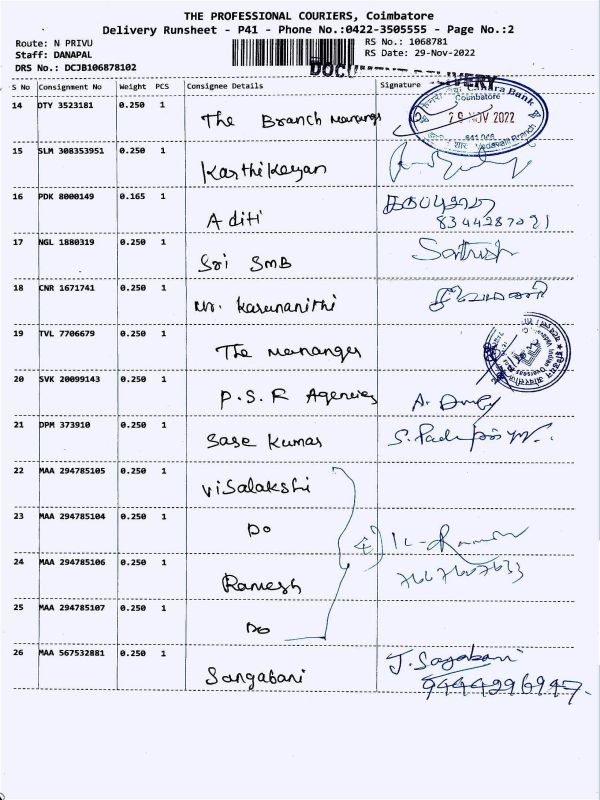 THE PROFESSIONAL COURIERS, Coimbatore
Delivery Runsheet - P41 - Phone No.:0422-3505555 - Page No.:2
Route: N PRIVU
RS No.: 1068781
Staff: DANAPAL
RS Date: 29-Nov-2022
DRS No.: DCJB106878102
S No Consignment No Weight PCS Consignee Details Signature
14 DTY 3523181 0.250 1 The Branch Manangs
Canara Bank
Coimbatore
29 NOV 2022
641 046
Vadavalli Branch
15 SLM 308353951 0.250 1 Karthikeyan
16 PDK 8000149 0.165 1 Aditi
8344287021
17 NGL 1880319 0.250 1 Sri SMB Sathish
18 CNR 1671741 0.250 1 Mr. Karunanithi
19 TVL 7706679 0.250 1 The mananger
Indian Overseas
20 SVK 20099143 0.250 1 P.S.R Agencies
21 DPM 373910 0.250 1 Sase Kumar
22 MAA 294785105 0.250 1 Visalakshi
23 MAA 294785104 0.250 1 Do
24 MAA 294785106 0.250 1 Ramesh
25 MAA 294785107 0.250 1 Do
26 MAA 567532881 0.250 1 Sangabani J. Sagabani
9444296947